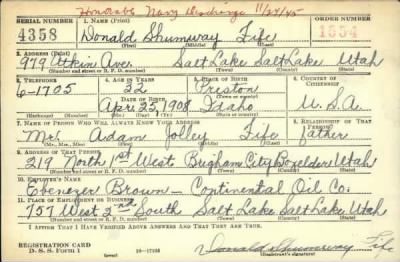 Honorable Navy Discharge 11/24/45
SERIAL NUMBER 1. NAME (Print) ORDER NUMBER
4358 Donald Shumway Fife 1554
(First) (Middle) (Last)
2. ADDRESS (Print)
979 Atkin Ave. Salt Lake Salt Lake Utah
(Number and street or R. F. D. number) (Town) (County) (State)
3. TELEPHONE 4. AGE IN YEARS 5. PLACE OF BIRTH 6. COUNTRY OF CITIZENSHIP
6-1705 32 Preston
DATE OF BIRTH (Town or county)
Apr 25, 1908 Idaho U.S.A
(Mo.) (Day) (Yr.) (State or country)
7. NAME OF PERSON WHO WILL ALWAYS KNOW YOUR ADDRESS 8. RELATIONSHIP OF THAT PERSON
Mr. Adam Jolley Fife father
(Mr., Mrs., Miss) (First) (Middle) (Last)
9. ADDRESS OF THAT PERSON
219 North 1st West Brigham City Boxelder Utah
(Number and street or R. F. D. number) (Town) (County) (State)
10. EMPLOYER'S NAME
Ebenezer Brown - Continental Oil Co.
11. PLACE OF EMPLOYMENT OR BUSINESS
757 West 2nd South Salt Lake Salt Lake Utah
(Number and street or R. F. D. number) (Town) (County) (State)
I AFFIRM THAT I HAVE VERIFIED ABOVE ANSWERS AND THAT THEY ARE TRUE.
REGISTRATION CARD
D. S. S. Form 1 (over) 16-17105 Donald Shumway Fife
(Registrant's signature)